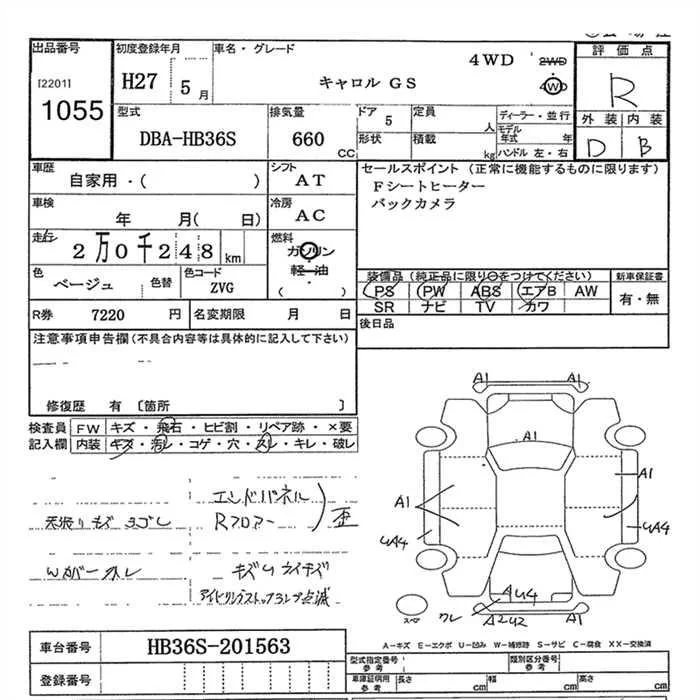 出品番号
[2201]
1055
初度登録年月
H27 5月
車名・グレード
キャロル GS
4WD
2WD
4WD
評価点
R
外装 内装
D B
型式
DBA-HB36S
排気量
660 CC
ドア 5
定員 人
形状
積載 kg
ディーラー・並行
モデル年式 年
ハンドル 左・右
車歴
自家用・( )
シフト
AT
セールスポイント(正常に機能するものに限ります)
Fシートヒーター
バックカメラ
車検
年 月( 日)
冷房
AC
走行
2万0千248km
燃料
ガソリン
軽・油
( )
色
ベージュ
色替
色コード
ZVG
装備品(純正品に限り○をつけてください)
PS PW ABS エアB AW
SR ナビ TV カワ
新車保証書
有・無
R券 7220円
名変期限 月 日
後日品
注意事項申告欄(不具合内容等は具体的に記入して下さい)
修復歴 有 〔箇所 〕
検査員記入欄
FW キズ・飛石・ヒビ割・リペア跡・×要
内装 キズ・汚レ・コゲ・穴・スレ・キレ・破レ
エンドパネル
Rフロアー
歪
天張りキズ ヨゴレ
Wカバー カレ
キズ U ライナズ
アイドリングストップランプ点滅
A1 A1
A1
A1
A1
UA4
UA4
AU4
スペア
ワレ
A2U2
A1
A-キズ E-エクボ U-凹み W-補修跡 S-サビ C-腐食 XX-交換済
車台番号
HB36S-201563
登録番号
型式指定番号 参考
類別区分番号 参考
車庫証明用 参考
長さ cm
幅 cm
高さ cm